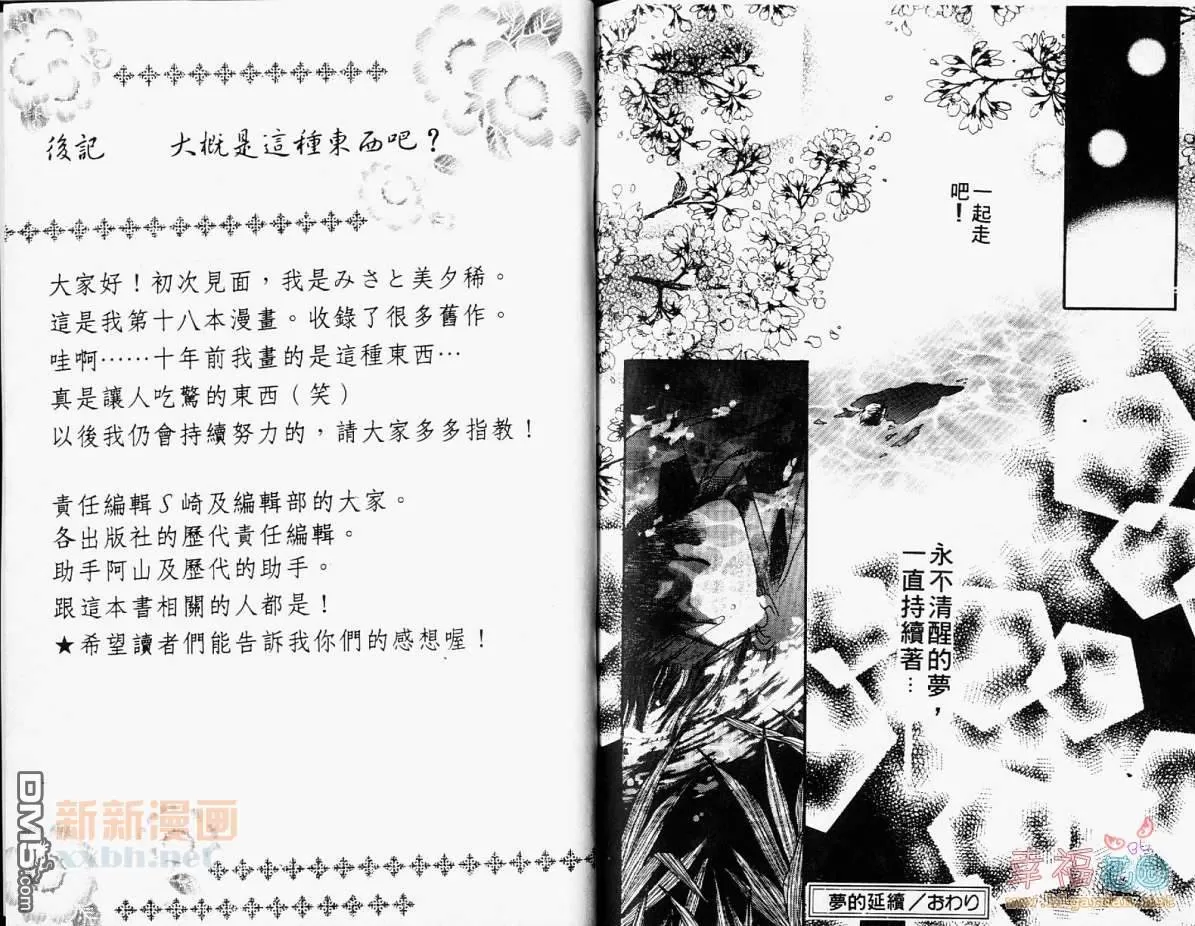 一起走
吧！
永不清醒的夢，
一直持續著…
夢的延續／おわり
後記 大概是這種東西吧？
大家好！初次見面，我是みさと美夕稀。
這是我第十八本漫畫。收錄了很多舊作。
哇啊⋯⋯十年前我畫的是這種東西⋯
真是讓人吃驚的東西（笑）
以後我仍會持續努力的，請大家多多指教！
責任編輯S崎及編輯部的大家。
各出版社的歷代責任編輯。
助手阿山及歷代的助手。
跟這本書相關的人都是！
★希望讀者們能告訴我你們的感想喔！
DM5.com
新新漫画
xxbh.net
幸福花园